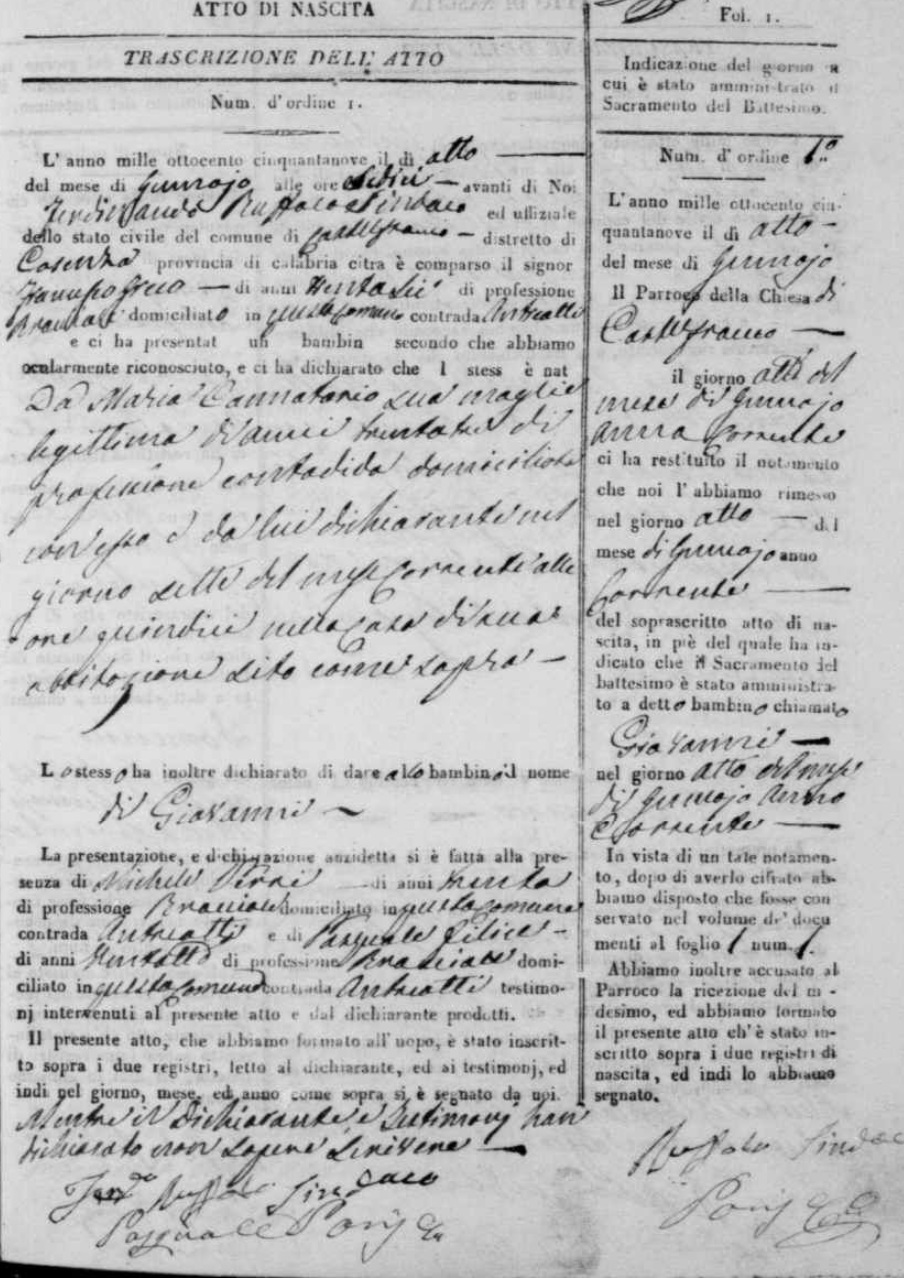 ATTO DI NASCITA
TRASCRIZIONE DELL' ATTO
Num. d' ordine 1.
L' anno mille ottocento cinquantanove il dì otto
del mese di Gennajo alle ore sedici avanti di Noi
Ferdinando Ruffolo Sindaco ed uffiziale
dello stato civile del comune di Castelfranco distretto di
Cosenza provincia di calabria citra è comparso il signor
Greco di anni trentasei di professione
Bracciale domiciliato in questo Comune contrada
e ci ha presentat un bambin secondo che abbiamo
ocularmente riconosciuto, e ci ha dichiarato che l stess è nat
Da Maria Cannatario sua moglie
legittima di anni trentatre di
professione contadida domiciliata
con esso e da lui dichiarante nel
giorno sette del mese corrente alle
ore quindici nella casa di sua
abbitazione sito come sopra
L o stess o ha inoltre dichiarato di dare allo bambino il nome
di Giovanni
La presentazione, e dichiarazione anzidetta si è fatta alla pre-
senza di Michele Perri di anni trenta
di professione Bracciale domiciliato in questo Comune
contrada Antreatti e di Pasquale Filice
di anni trentotto di professione Bracciale domi-
ciliato in questo Comune contrada Antreatti testimo-
nj intervenuti al presente atto e dal dichiarante prodotti.
Il presente atto, che abbiamo formato all' uopo, è stato inscrit-
to sopra i due registri, letto al dichiarante, ed ai testimonj, ed
indi nel giorno, mese, ed anno come sopra si è segnato da noi.
Mentre il Dichiarante, e Testimonj han
dichiarato non sapere scrivere
Ferdo Ruffolo Sindaco
Pasquale
Fol. 1.
Indicazione del giorno a
cui è stato amministrato il
Sacramento del Battesimo.
Num. d' ordine 1.o
L' anno mille ottocento cin-
quantanove il dì otto
del mese di Gennajo
Il Parroco della Chiesa di
Castelfranco
il giorno otto del
mese di Gennajo
anno Corrente
ci ha restituito il notamento
che noi l' abbiamo rimesso
nel giorno otto del
mese di Gennajo anno
Corrente
del soprascritto atto di na-
scita, in piè del quale ha in-
dicato che il Sacramento del
battesimo è stato amministra-
to a detto bambino chiamato
Giovanni
nel giorno otto del mese
di Gennajo Anno
Corrente
In vista di un tale notamen-
to, dopo di averlo cifrato ab-
biamo disposto che fosse con
servato nel volume de' docu
menti al foglio 1 num. 1.
Abbiamo inoltre accusato al
Parroco la ricezione del m -
desimo, ed abbiamo formato
il presente atto ch' è stato in-
scritto sopra i due registri di
nascita, ed indi lo abbiamo
segnato.
Ruffolo Sindaco